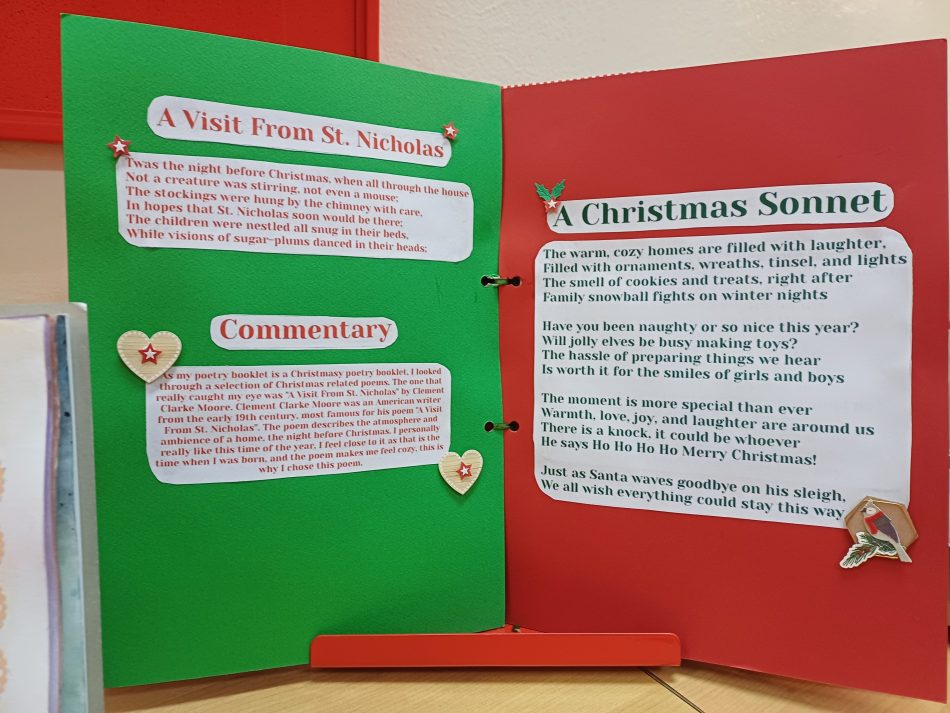 A Visit From St. Nicholas
Twas the night before Christmas, when all through the house
Not a creature was stirring, not even a mouse;
The stockings were hung by the chimney with care,
In hopes that St. Nicholas soon would be there;
The children were nestled all snug in their beds,
While visions of sugar-plums danced in their heads;
Commentary
As my poetry booklet is a Christmasy poetry booklet, I looked
through a selection of Christmas related poems. The one that
really caught my eye was "A Visit From St. Nicholas" by Clement
Clarke Moore. Clement Clarke Moore was an American writer
from the early 19th century, most famous for his poem "A Visit
From St. Nicholas". The poem describes the atmosphere and
ambience of a home, the night before Christmas. I personally
really like this time of the year, I feel close to it as that is the
time when I was born, and the poem makes me feel cozy, this is
why I chose this poem.
A Christmas Sonnet
The warm, cozy homes are filled with laughter,
Filled with ornaments, wreaths, tinsel, and lights
The smell of cookies and treats, right after
Family snowball fights on winter nights
Have you been naughty or so nice this year?
Will jolly elves be busy making toys?
The hassle of preparing things we hear
Is worth it for the smiles of girls and boys
The moment is more special than ever
Warmth, love, joy, and laughter are around us
There is a knock, it could be whoever
He says Ho Ho Ho Ho Merry Christmas!
Just as Santa waves goodbye on his sleigh,
We all wish everything could stay this way